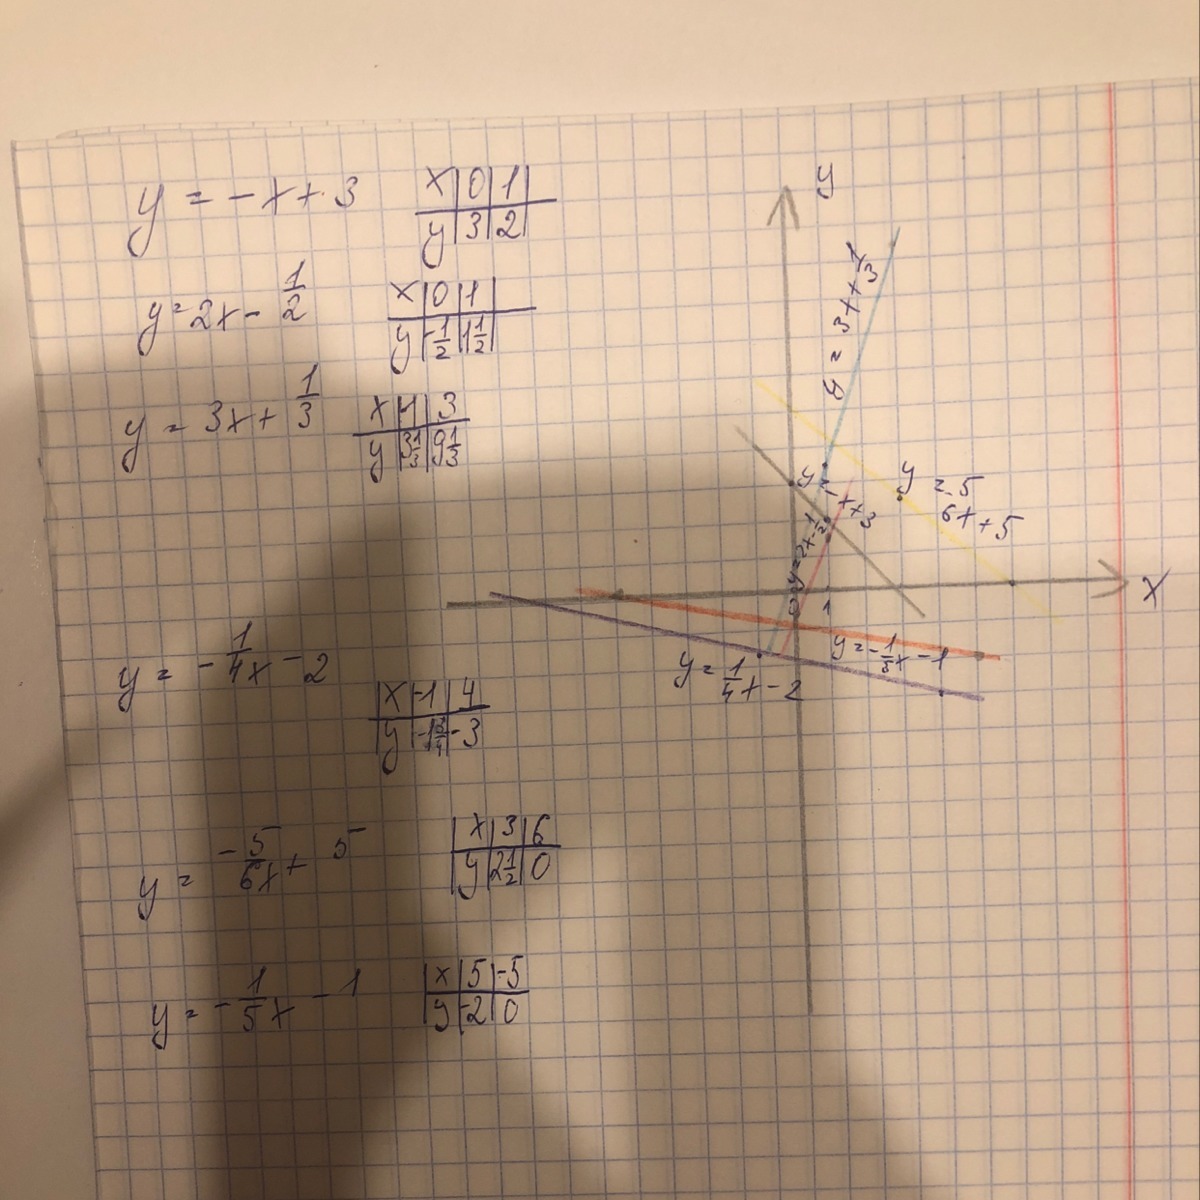 y = -x + 3
x 0 1
y 3 2
y = 2x - 1/2
x 0 1
y -1/2 1 1/2
y = 3x + 1/3
x 1 3
y 3 1/3 9 1/3
y = -1/4x - 2
x -1 4
y -1 3/4 -3
y = -5/6x + 5
x 3 6
y 2 1/2 0
y = -1/5x - 1
x 5 -5
y -2 0
y
y = 3x + 1/3
y = -x + 3
y = -5/6x + 5
y = 2x - 1/2
x
0
1
y = -1/5x - 1
y = 1/4x - 2